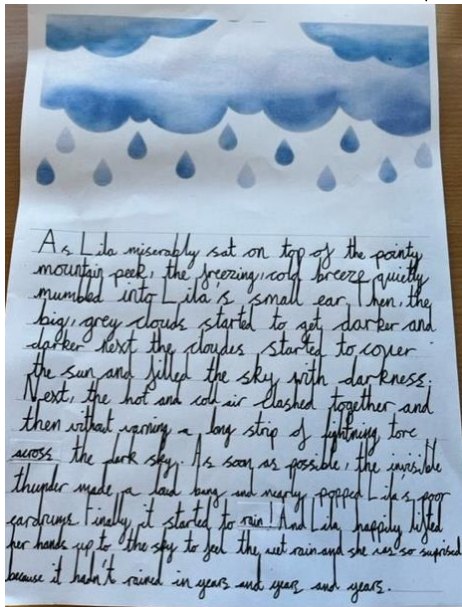 As Lila miserably sat on top of the pointy
mountain peek, the freezing, cold breeze quietly
mumbled into Lila's small ear. Then, the
big, grey clouds started to get darker and
darker next the cloudes started to cover
the sun and filled the sky with darkness.
Next, the hot and cold air clashed together and
then without warning a long strip of lightning tore
across the dark sky. As soon as possible, the invisible
thunder made a loud bang and nearly popped Lila's poor
eardrums. Finally, it started to rain! And Lila happily lifted
her hands up to the sky to feel the wet rain and she was so suprised
because it hadn't rained in years and years and years.